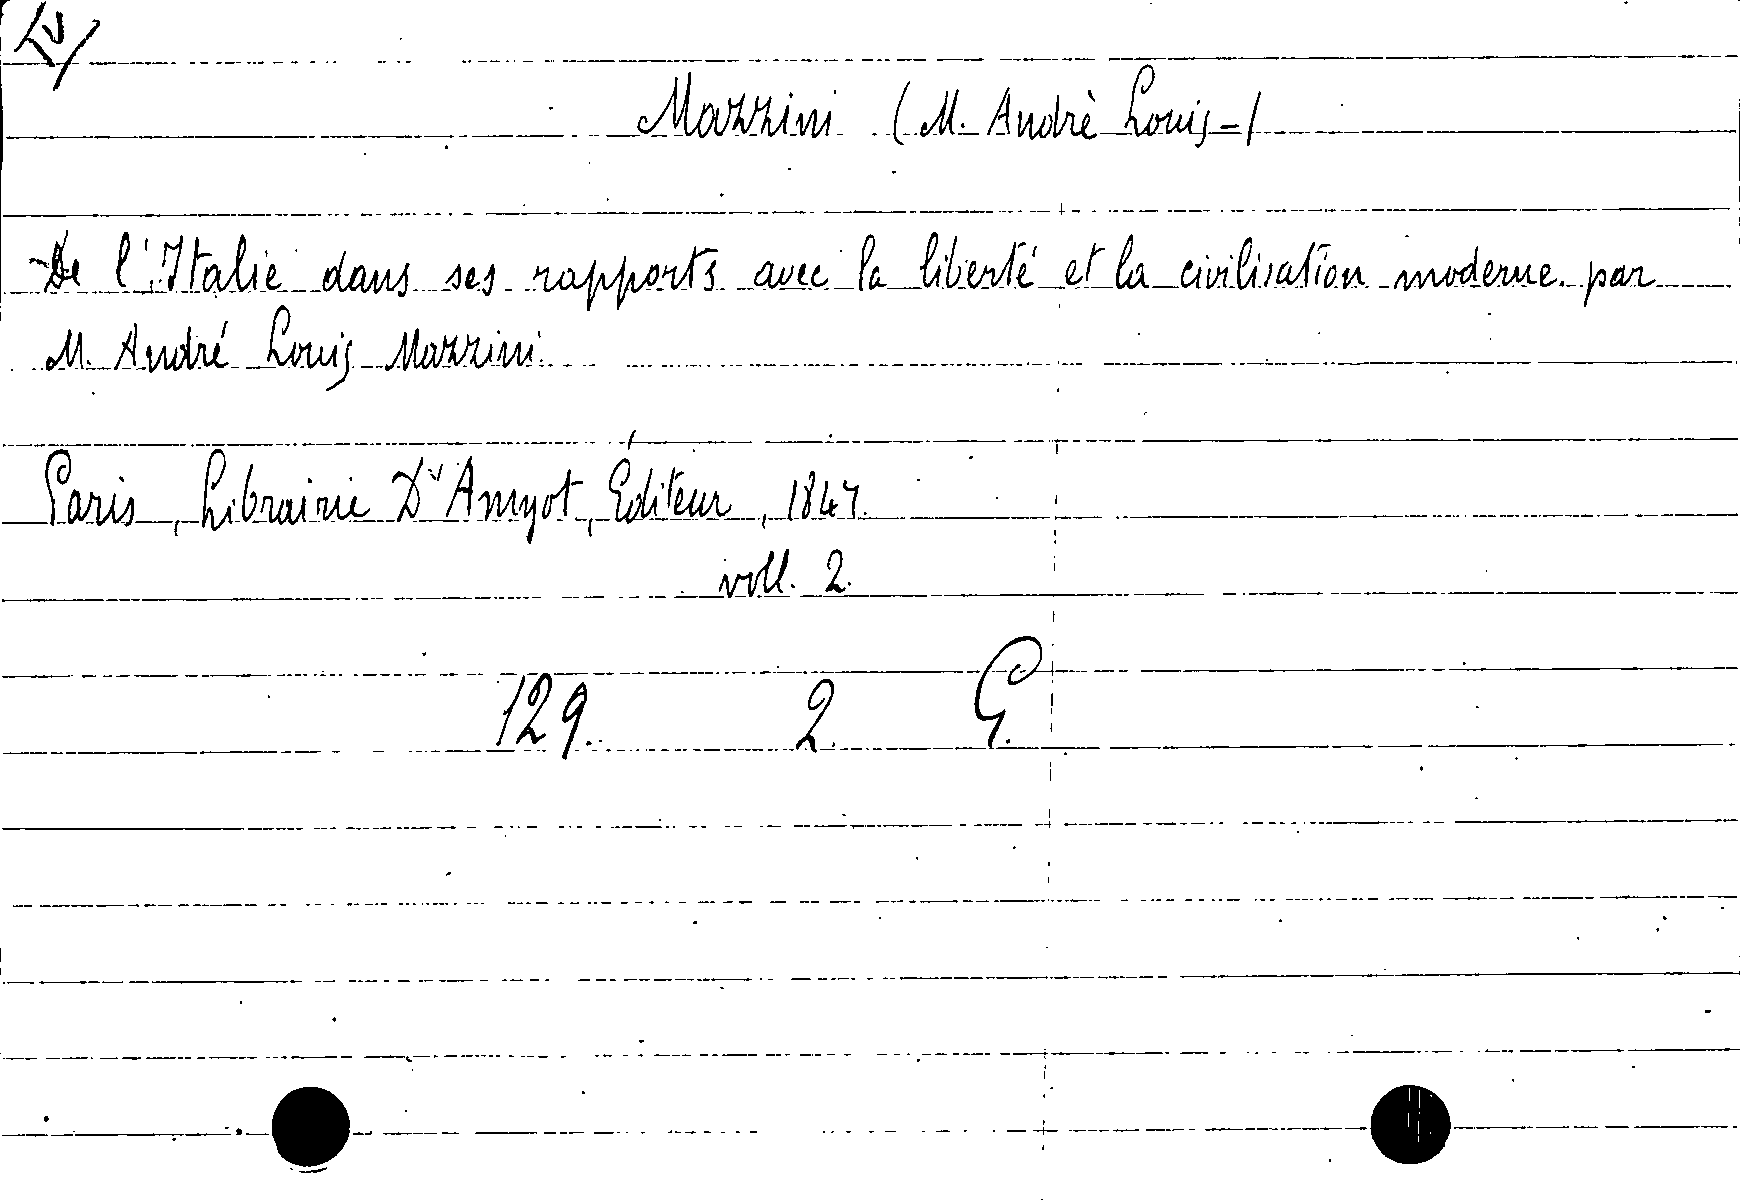 Mazzini (M. Andrè Louis-)
De l'Italie dans ses rapports avec la liberté et la civilisation moderne. par
M. André Louis Mazzini.
Paris, Librairie D'Amyot, Éditeur, 1847.
voll. 2.
129. 2. G.